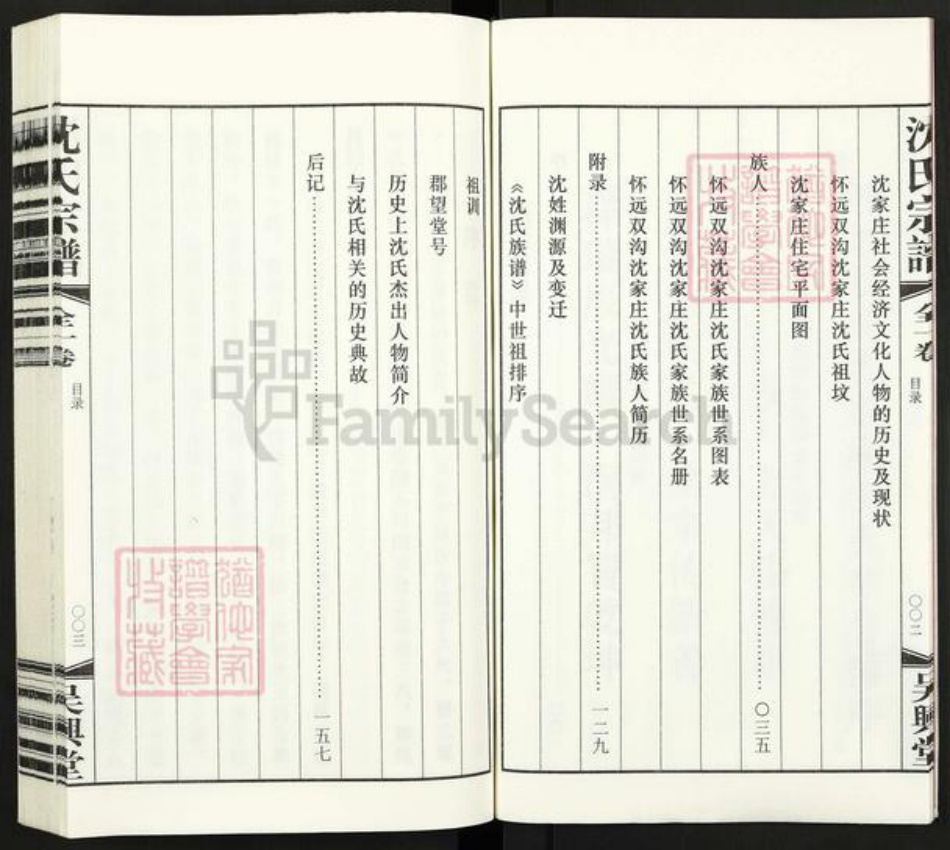 沈氏宗谱
全一卷
目录
〇〇二
吴興堂
沈家庄社会经济文化人物的历史及现状
怀远双沟沈家庄沈氏祖坟
沈家庄住宅平面图
族人……〇三五
怀远双沟沈家庄沈氏家族世系图表
怀远双沟沈家庄沈氏家族世系名册
怀远双沟沈家庄沈氏族人简历
附录……一二九
沈姓渊源及变迁
《沈氏族谱》中世祖排序
祖训
郡望堂号
历史上沈氏杰出人物简介
与沈氏相关的历史典故
后记……一五七
沈氏宗譜
全一卷
目录
〇〇三
吴興堂
譜學會
收藏
FamilySearch